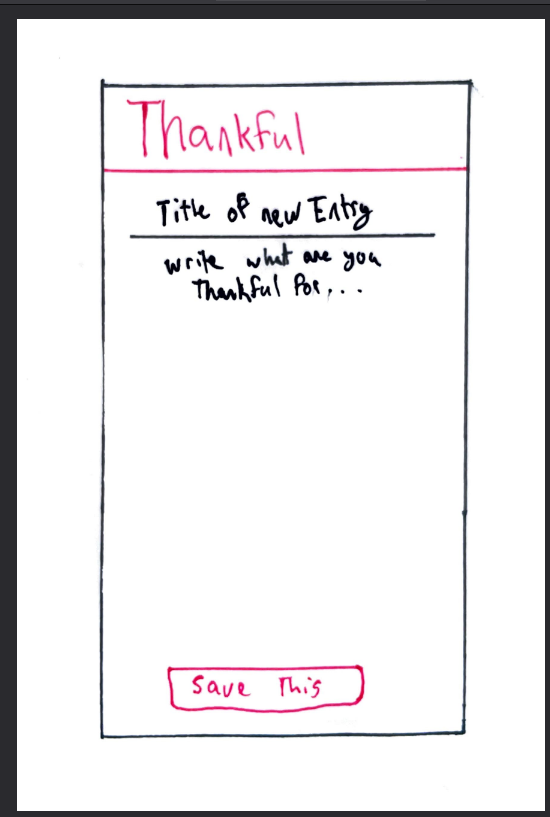 Thankful
Title of new Entry
write what are you
Thankful for...
Save This